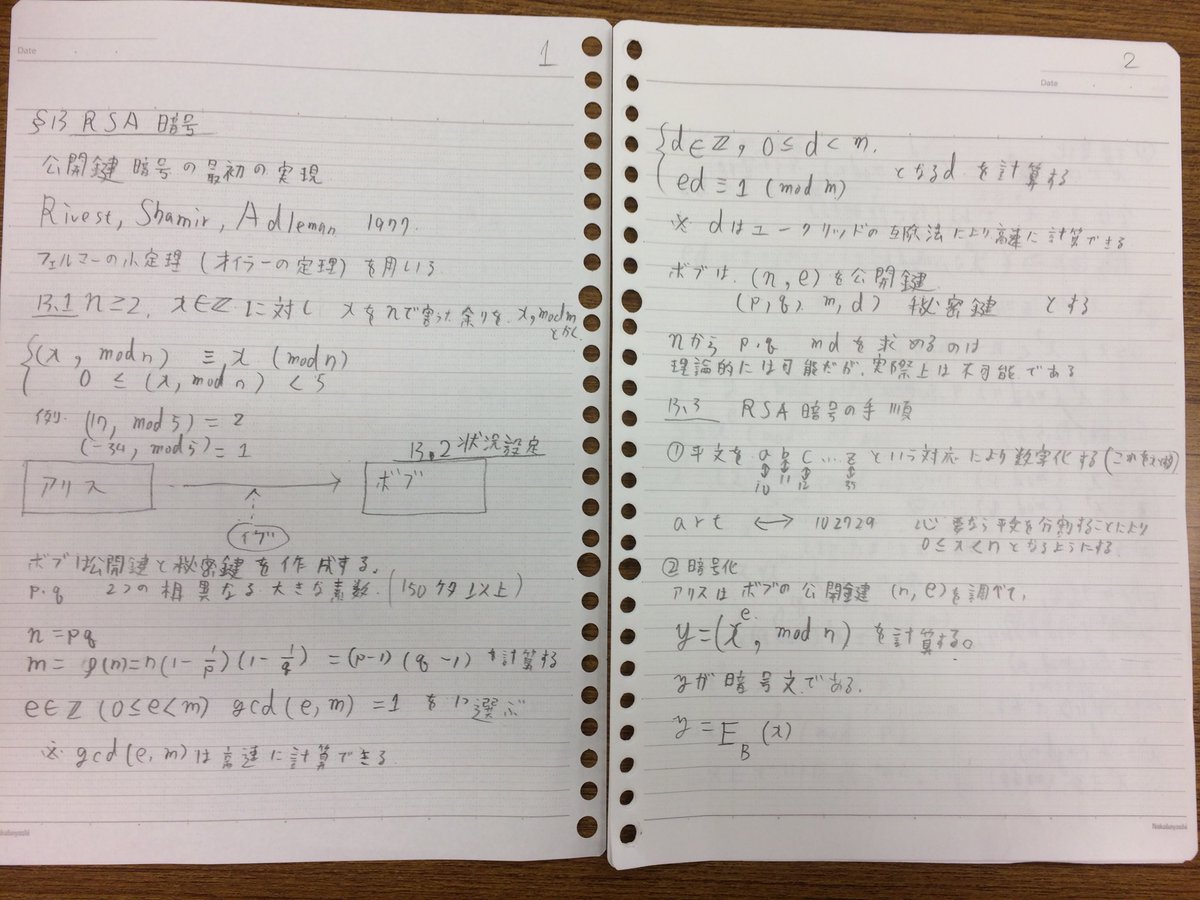 Date
1
§13 RSA 暗号
公開鍵暗号の最初の実現
Rivest, Shamir, Adleman 1977.
フェルマーの小定理(オイラーの定理)を用いる
13.1 n≥2, x∈ℤ に対し xをnで割った余りを x, mod n
とかく
{(x, mod n) ≡ x (mod n)
0 ≤ (x, mod n) < 5
例. (17, mod 5) = 2
(-34, mod 5) = 1
13.2 状況設定
アリス → ボブ
イヴ
ボブは公開鍵と秘密鍵を作成する.
p.q 2つの相異なる大きな素数.(150ケタ以上)
n = pq
m = φ(n)=n(1-1/p)(1-1/q) =(p-1)(q-1) を計算する
e∈ℤ (0≤e<m) gcd(e,m) =1 を1つ選ぶ
※ gcd(e,m)は高速に計算できる.
Nakabayashi
2
Date
{d∈ℤ, 0≤d<m.
ed≡1 (mod m) となるd を計算する
※ dはユークリッドの互除法により高速に計算できる
ボブは. (n,e)を公開鍵
(p,q, m,d) 秘密鍵 とする
nから p.q m d を求めるのは
理論的には可能だが,実際上は不可能である
13.3 RSA暗号の手順
①平文を a b c … z という対応により数字化する(これをxとする)
10 11 12 35
art ↔ 102729 必要なら平文を分割することにより
0≤x<nとなるようにする.
②暗号化
アリスはボブの公開鍵 (n,e)を調べて,
y=(x^e, mod n) を計算する。
yが暗号文である.
y = E_B(x)
Nakabayashi